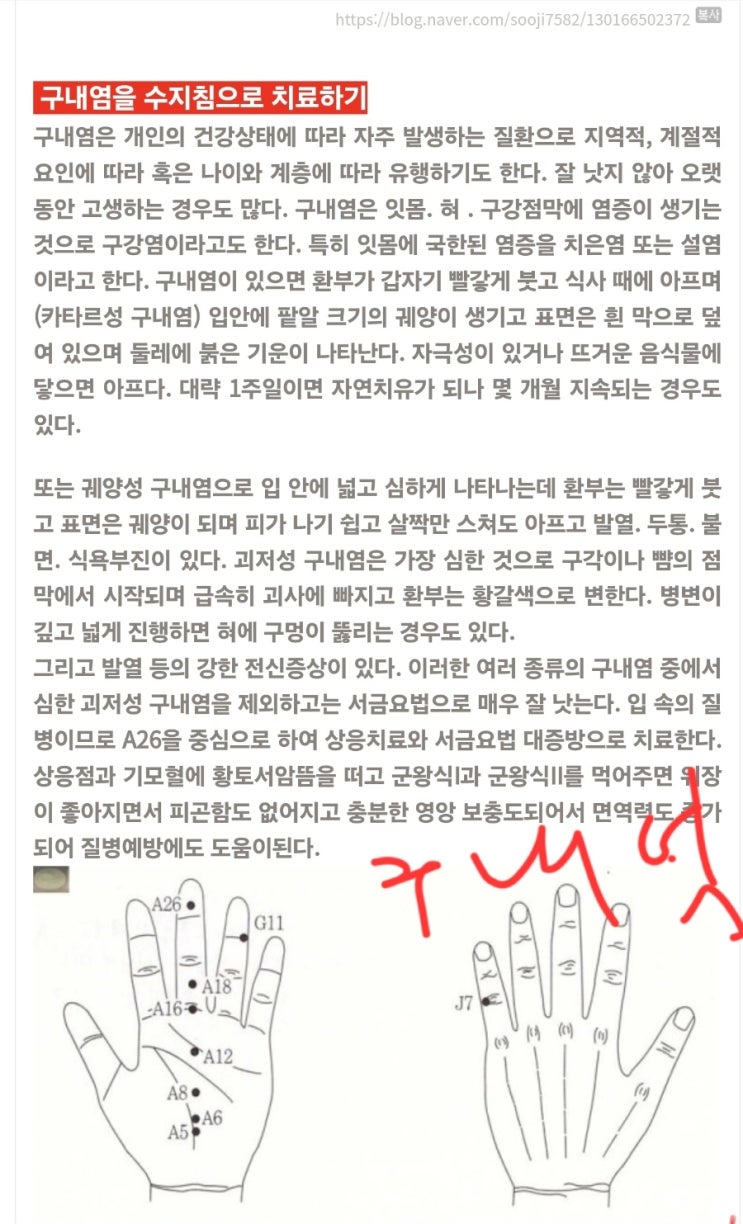 https://blog.naver.com/sooji7582/130166502372 복사
구내염을 수지침으로 치료하기
구내염은 개인의 건강상태에 따라 자주 발생하는 질환으로 지역적, 계절적
요인에 따라 혹은 나이와 계층에 따라 유행하기도 한다. 잘 낫지 않아 오랫
동안 고생하는 경우도 많다. 구내염은 잇몸. 혀 . 구강점막에 염증이 생기는
것으로 구강염이라고도 한다. 특히 잇몸에 국한된 염증을 치은염 또는 설염
이라고 한다. 구내염이 있으면 환부가 갑자기 빨갛게 붓고 식사 때에 아프며
(카타르성 구내염) 입안에 팥알 크기의 궤양이 생기고 표면은 흰 막으로 덮
여 있으며 둘레에 붉은 기운이 나타난다. 자극성이 있거나 뜨거운 음식물에
닿으면 아프다. 대략 1주일이면 자연치유가 되나 몇 개월 지속되는 경우도
있다.
또는 궤양성 구내염으로 입 안에 넓고 심하게 나타나는데 환부는 빨갛게 붓
고 표면은 궤양이 되며 피가 나기 쉽고 살짝만 스쳐도 아프고 발열. 두통. 불
면. 식욕부진이 있다. 괴저성 구내염은 가장 심한 것으로 구각이나 뺨의 점
막에서 시작되며 급속히 괴사에 빠지고 환부는 황갈색으로 변한다. 병변이
깊고 넓게 진행하면 혀에 구멍이 뚫리는 경우도 있다.
그리고 발열 등의 강한 전신증상이 있다. 이러한 여러 종류의 구내염 중에서
심한 괴저성 구내염을 제외하고는 서금요법으로 매우 잘 낫는다. 입 속의 질
병이므로 A26을 중심으로 하여 상응치료와 서금요법 대증방으로 치료한다.
상응점과 기모혈에 황토서암뜸을 떠고 군왕식I과 군왕식II를 먹어주면 위장
이 좋아지면서 피곤함도 없어지고 충분한 영앙 보충도되어서 면역력도 증가
되어 질병예방에도 도움이된다.
구내염
A26
G11
A18
A16
J7
A12
A8
A6
A5